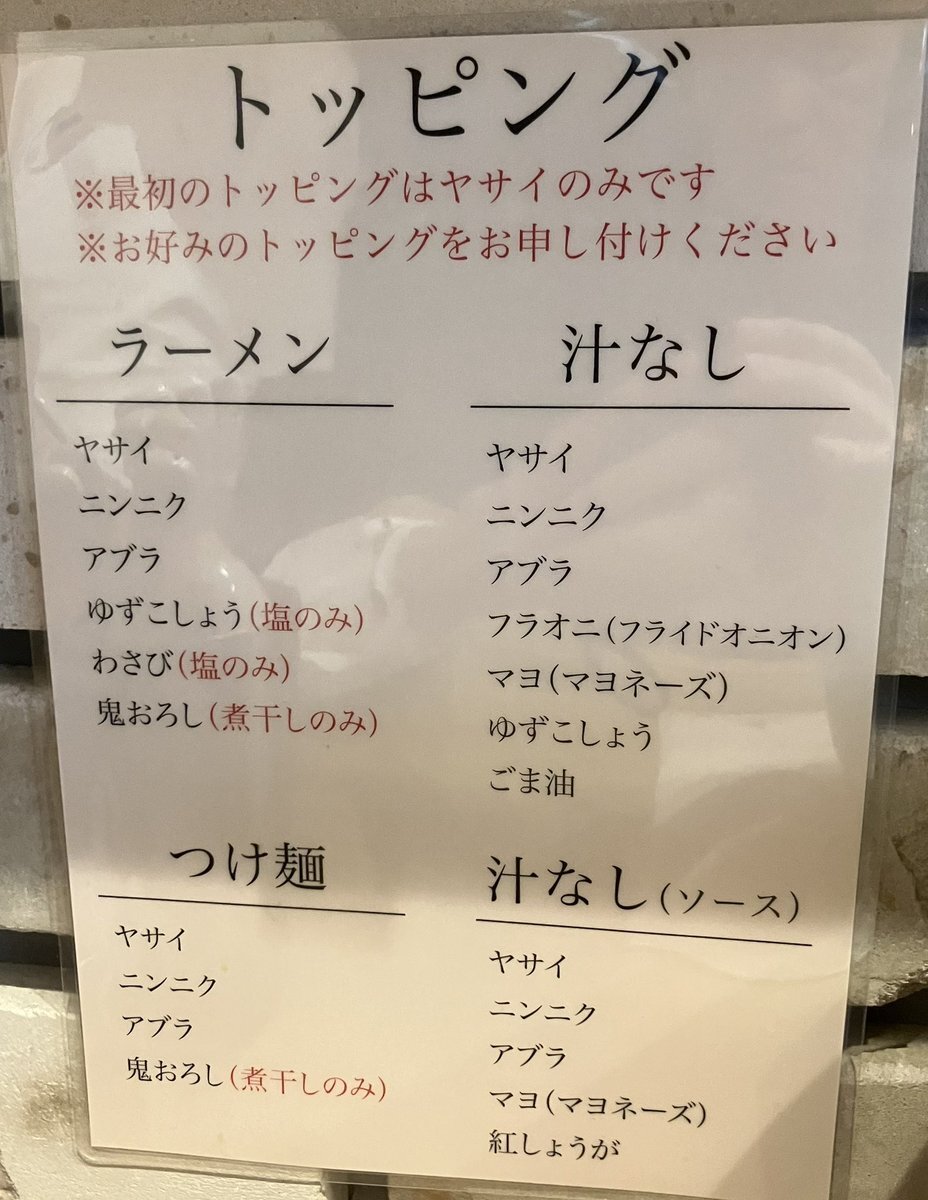 トッピング
※最初のトッピングはヤサイのみです
※お好みのトッピングをお申し付けください
ラーメン
ヤサイ
ニンニク
アブラ
ゆずこしょう(塩のみ)
わさび(塩のみ)
鬼おろし(煮干しのみ)
汁なし
ヤサイ
ニンニク
アブラ
フラオニ(フライドオニオン)
マヨ(マヨネーズ)
ゆずこしょう
ごま油
つけ麺
ヤサイ
ニンニク
アブラ
鬼おろし(煮干しのみ)
汁なし(ソース)
ヤサイ
ニンニク
アブラ
マヨ(マヨネーズ)
紅しょうが